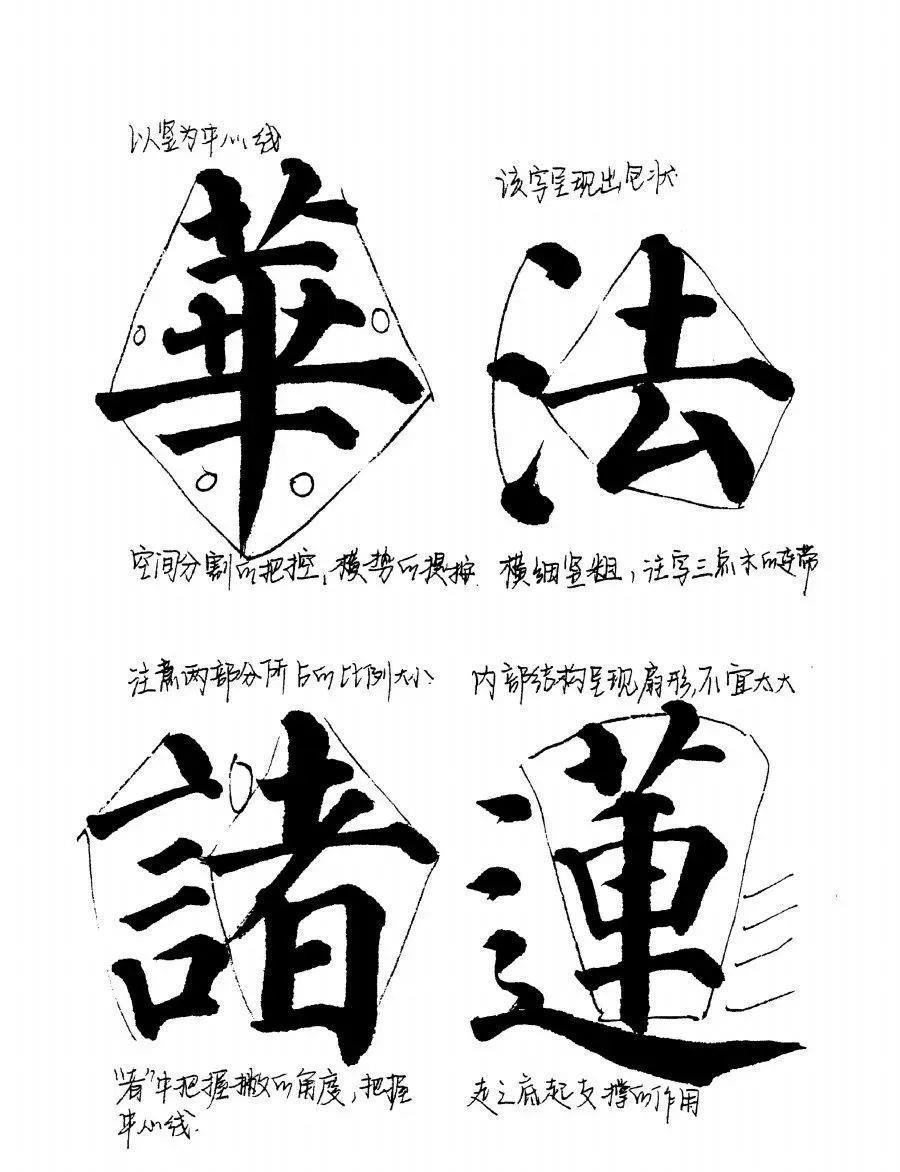 以竖为中心线
華
空间分割的把控，横势的提按
该字呈现出包状
法
横细竖粗，注写三点水的连带
注意两部分所占的比例大小
諸
"者"中把握撇的角度，把握
中心线.
内部结构呈现扇形，不宜太大
蓮
走之底起支撑的作用